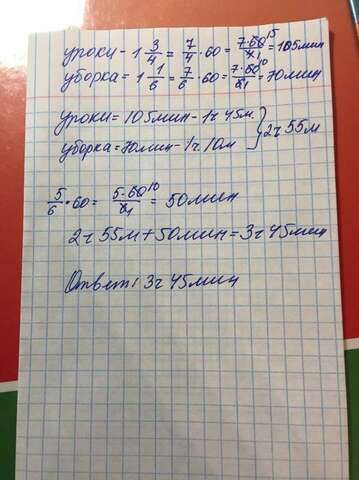 уроки - 1 3/4 = 7/4 · 60 = 7·60 15/4 1 = 105мин
уборка = 1 1/6 = 7/6 · 60 = 7·60 10/6 1 = 70мин
уроки = 105мин - 1ч 45м.
уборка = 70мин - 1ч. 10м } 2ч 55м
5/6 · 60 = 5·60 10/6 1 = 50мин
2ч 55м + 50мин = 3ч 45мин
Ответ: 3ч 45мин